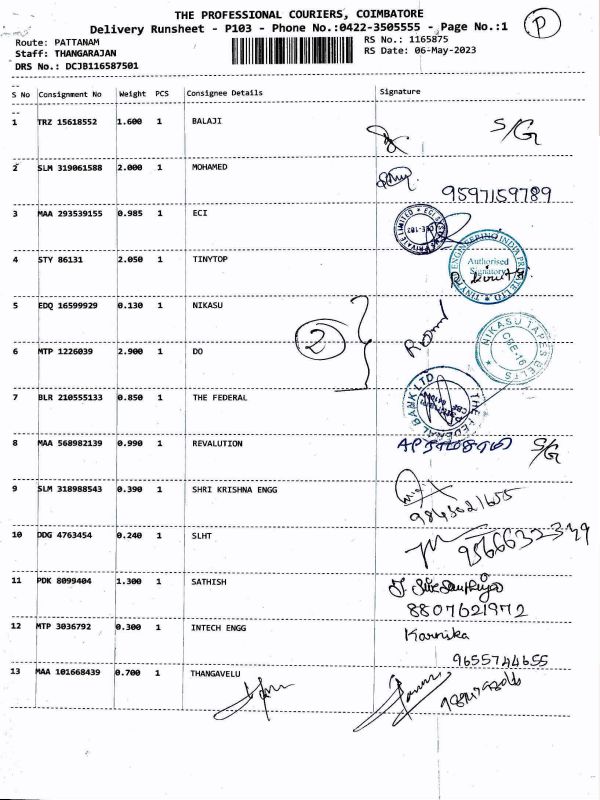 THE PROFESSIONAL COURIERS, COIMBATORE
Delivery Runsheet - P103 - Phone No.:0422-3505555 - Page No.:1
P
Route: PATTANAM
RS No.: 1165875
Staff: THANGARAJAN
RS Date: 06-May-2023
DRS No.: DCJB116587501
S No Consignment No Weight PCS Consignee Details Signature
1 TRZ 15618552 1.600 1 BALAJI S/G
2 SLM 319061588 2.000 1 MOHAMED
9597159789
3 MAA 293539155 0.985 1 ECI
4 STY 86131 2.050 1 TINYTOP
Authorised
Signatory
5 EDQ 16599929 0.130 1 NIKASU
2
NIKASU TAPES BELTS
CBE-16
6 MTP 1226039 2.900 1 DO
7 BLR 210555133 0.850 1 THE FEDERAL
THE FEDERAL BANK LTD
8 MAA 568982139 0.990 1 REVALUTION S/G
9 SLM 318988543 0.390 1 SHRI KRISHNA ENGG
9843021655
10 DDG 4763454 0.240 1 SLHT
9566632349
11 PDK 8099404 1.300 1 SATHISH
8807621972
12 MTP 3036792 0.300 1 INTECH ENGG Karnika
9655744655
13 MAA 101668439 0.700 1 THANGAVELU